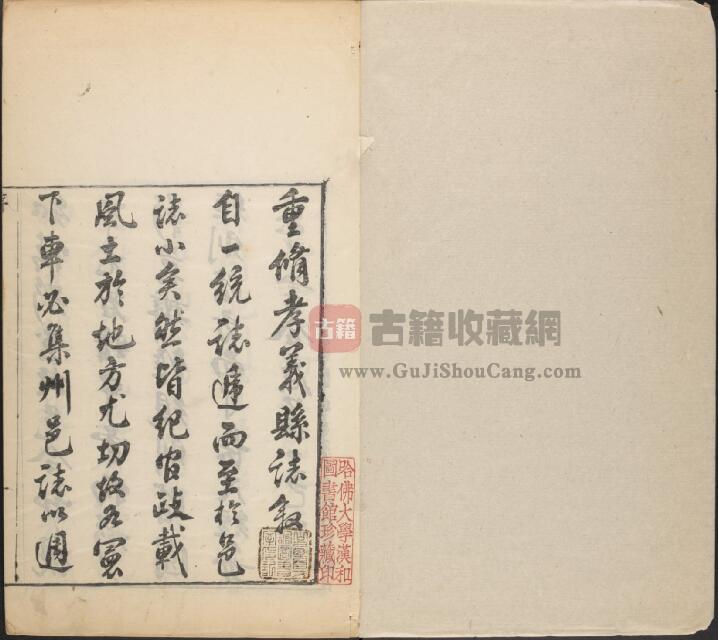 重脩孝義縣誌敘
自一統誌遞而至於邑
誌小矣然皆紀官政載
風土於地方尤切故君
下車必集州邑誌以週
序
哈佛大學漢和
圖書館珍藏印
古籍
古籍收藏網
www.GuJiShouCang.com